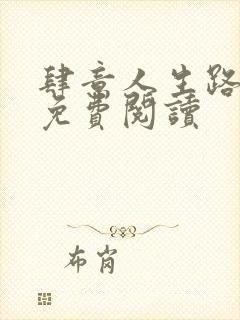 肆意人生路
免費閱讀
布岗